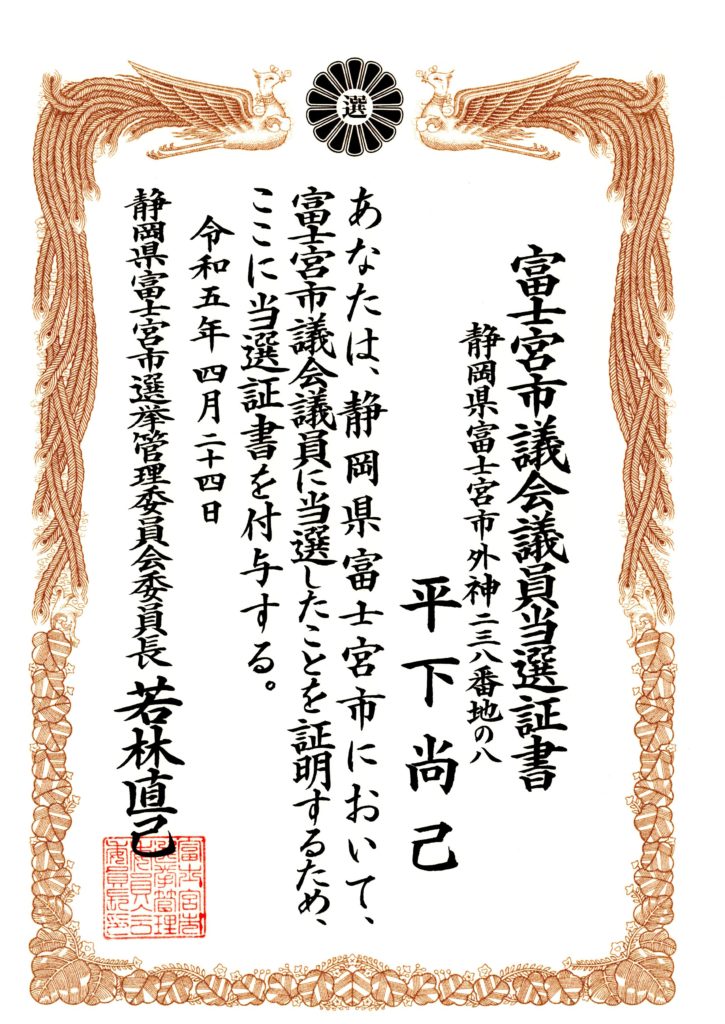 選
富士宮市議会議員当選証書
静岡県富士宮市外神二三八番地の八
平下尚己
あなたは、静岡県富士宮市において、
富士宮市議会議員に当選したことを証明するため、
ここに当選証書を付与する。
令和五年四月二十四日
静岡県富士宮市選挙管理委員会委員長 若林直己
富士宮市
選挙管理
委員会
委員長印